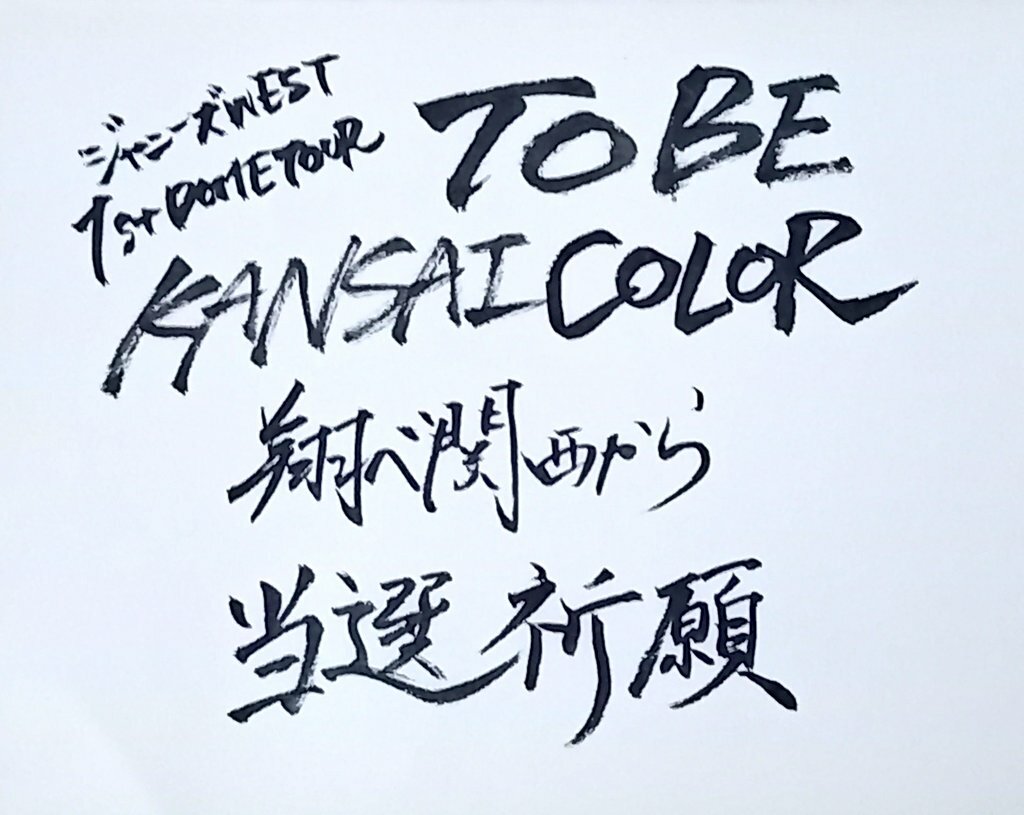 ジャニーズWEST
1st DOME TOUR
TO BE
KANSAI COLOR
翔べ関西から
当選祈願